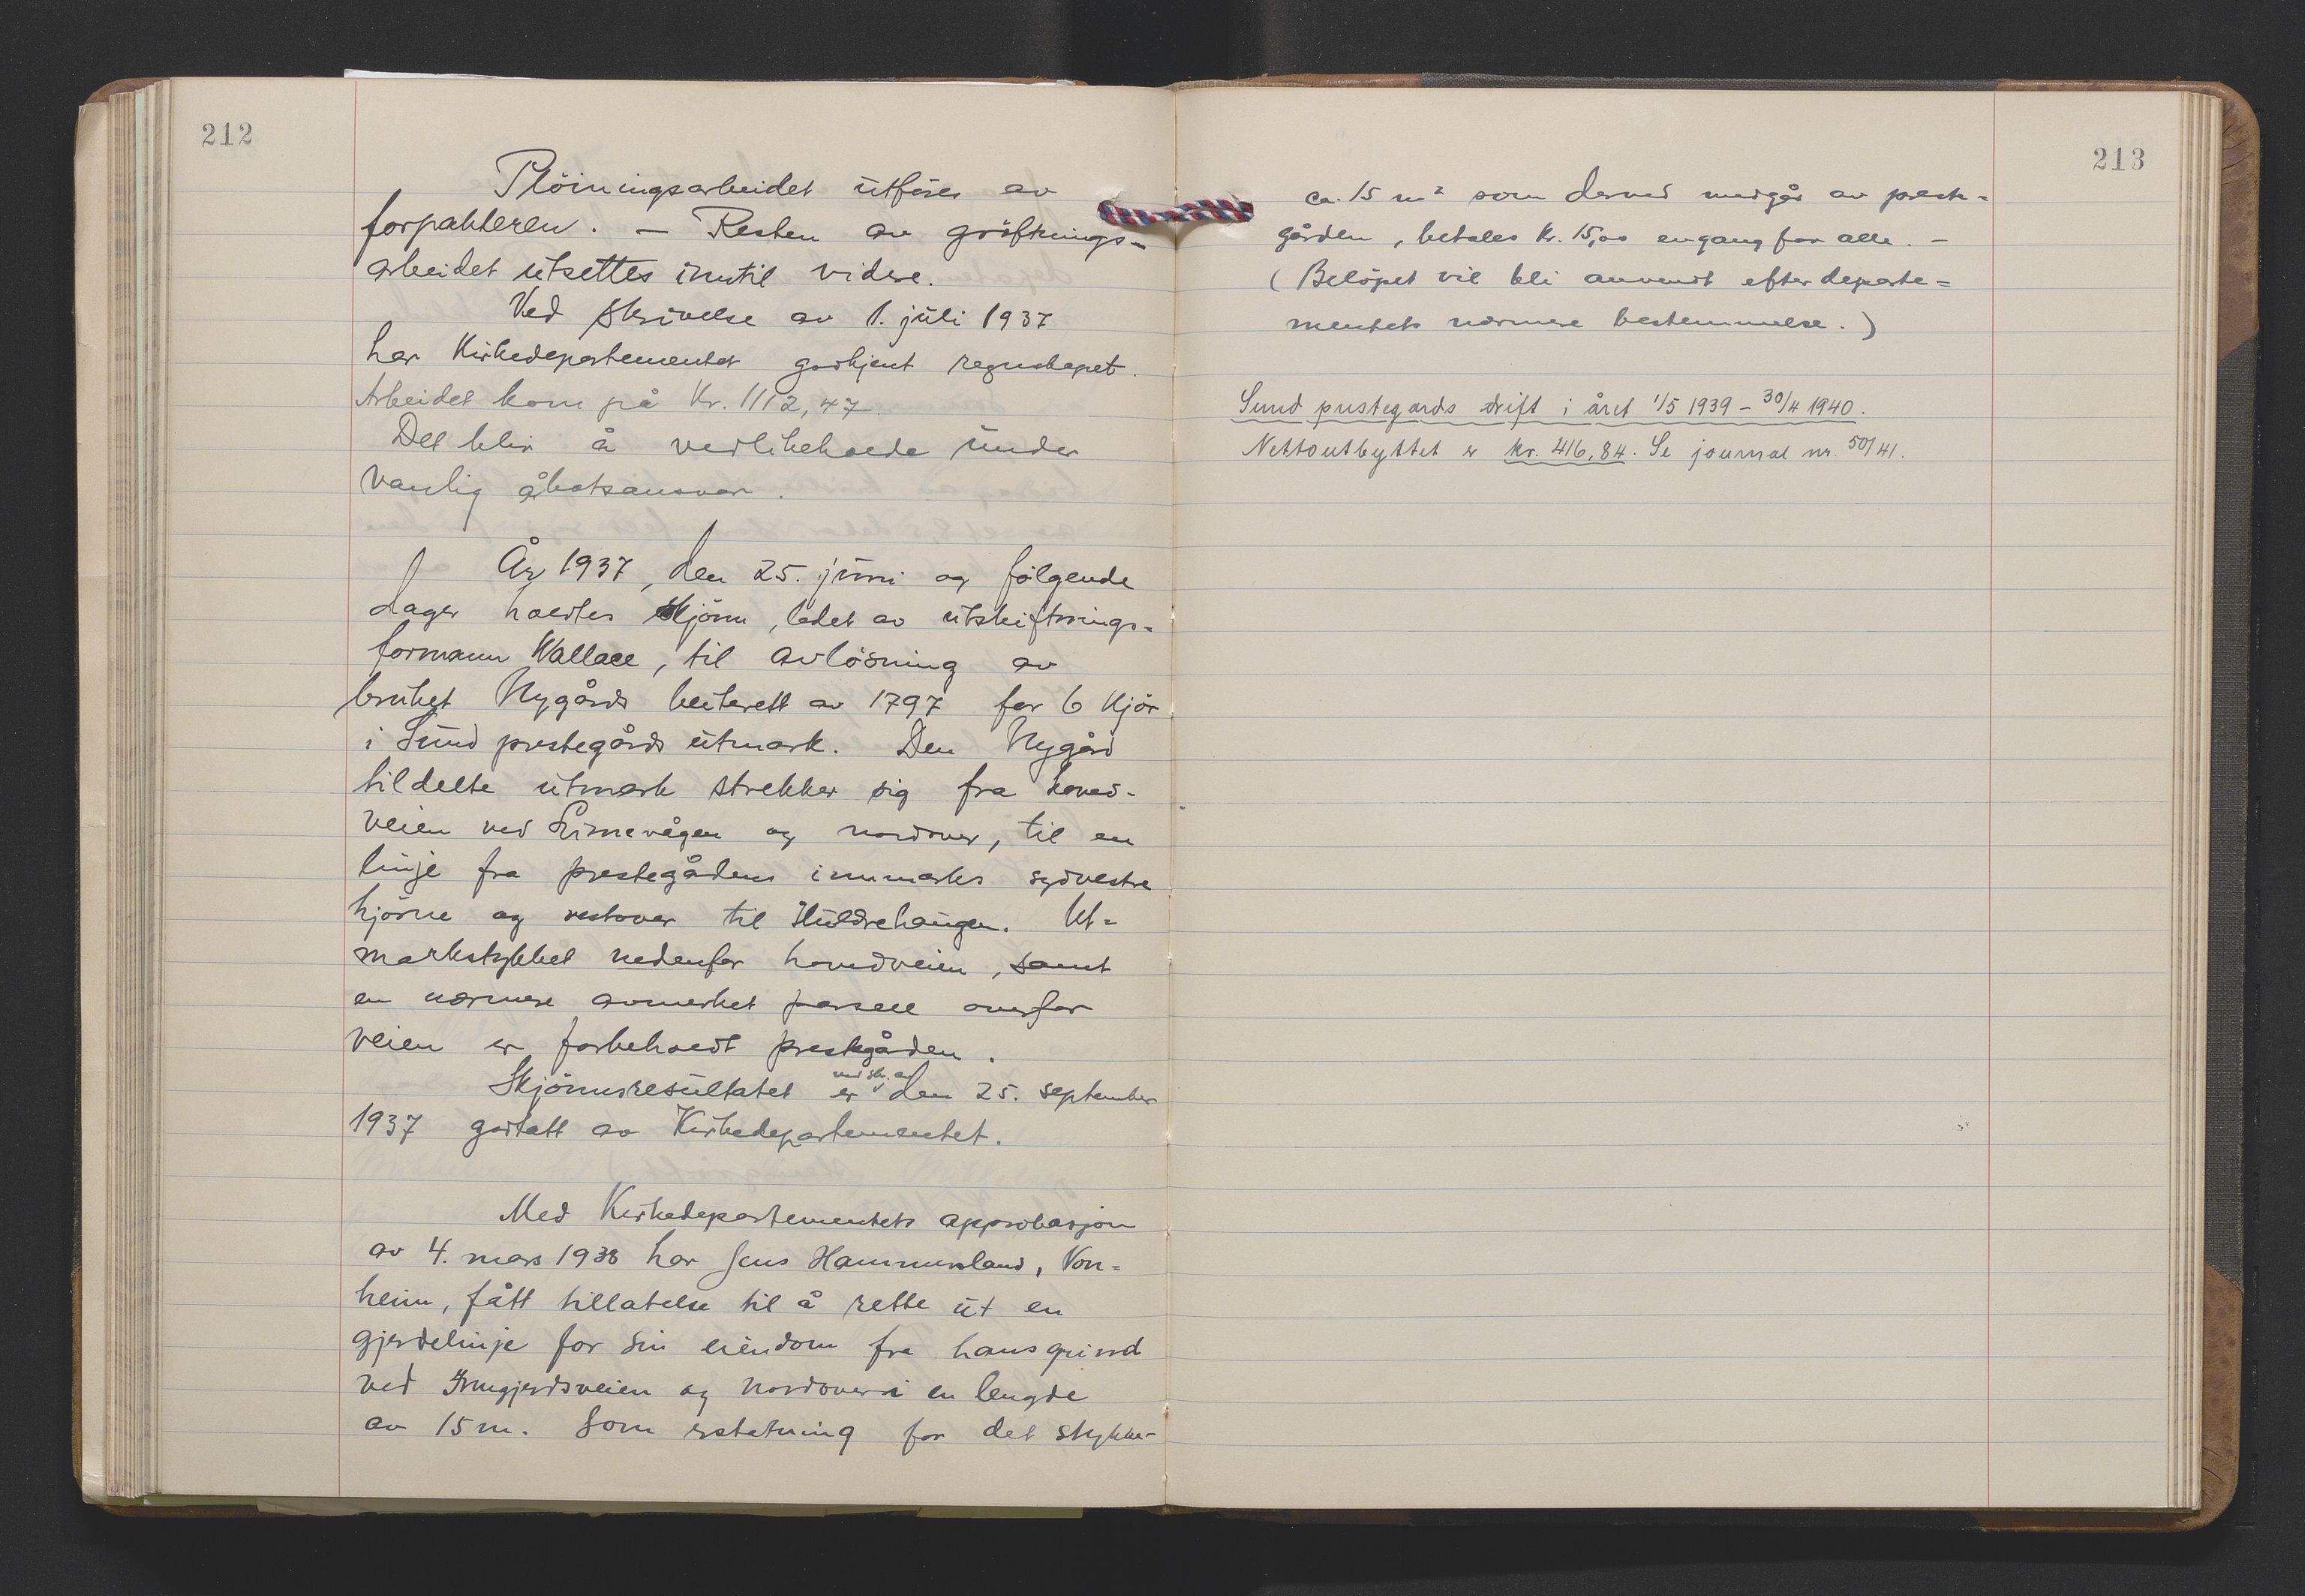 212
Plöiningsarbeidet utföres av
forpakteren. — Resten av gröftnings-
arbeidet utsettes inntil videre.
Ved skrivelse av 1. juli 1937
har Kirkedepartementet godkjent regnskapet.
Arbeidet kom på Kr. 1112,47.
Det blir å vedlikeholde under
vanlig åbotsansvar.
År 1937, den 25. juni og fölgende
dager holdtes skjönn, ledet av utskiftnings-
formann Wallace, til avlösning av
bruket Nygårds beiterett av 1797 for 6 kjör
i Sund prestegårds utmark. Den Nygård
tildelte utmark strekker sig fra hoved-
veien ved og nordover, til en
linje fra prestegårdens innmarks sydvestre
hjörne og vestover til Huldrehaugen. Ut-
markstykket nedenfor hovedveien, samt
en nærmere avmerket parsell ovenfor
veien er forbeholdt prestegården.
Skjönnsresultatet er ved skr. av den 25. september
1937 godtatt av Kirkedepartementet.
Med Kirkedepartementets approbasjon
av 4. mars 1938 har Jens Hammersland, Von-
heim, fått tillatelse til å rette ut en
gjerdelinje for sin eiendom fra hans grind
ved og nordover i en lengde
av 15 m. Som erstatning for det stykke
213
ca. 15 m² som derved medgår av preste-
gården, betales kr. 15,00 engang for alle. —
(Belöpet vil bli anvendt efter departe-
mentets nærmere bestemmelse.)
Sund prestegards drift i året 1/5 1939 – 30/4 1940.
Nettoutbyttet er kr. 416,84. Se journal nr. 50/41.